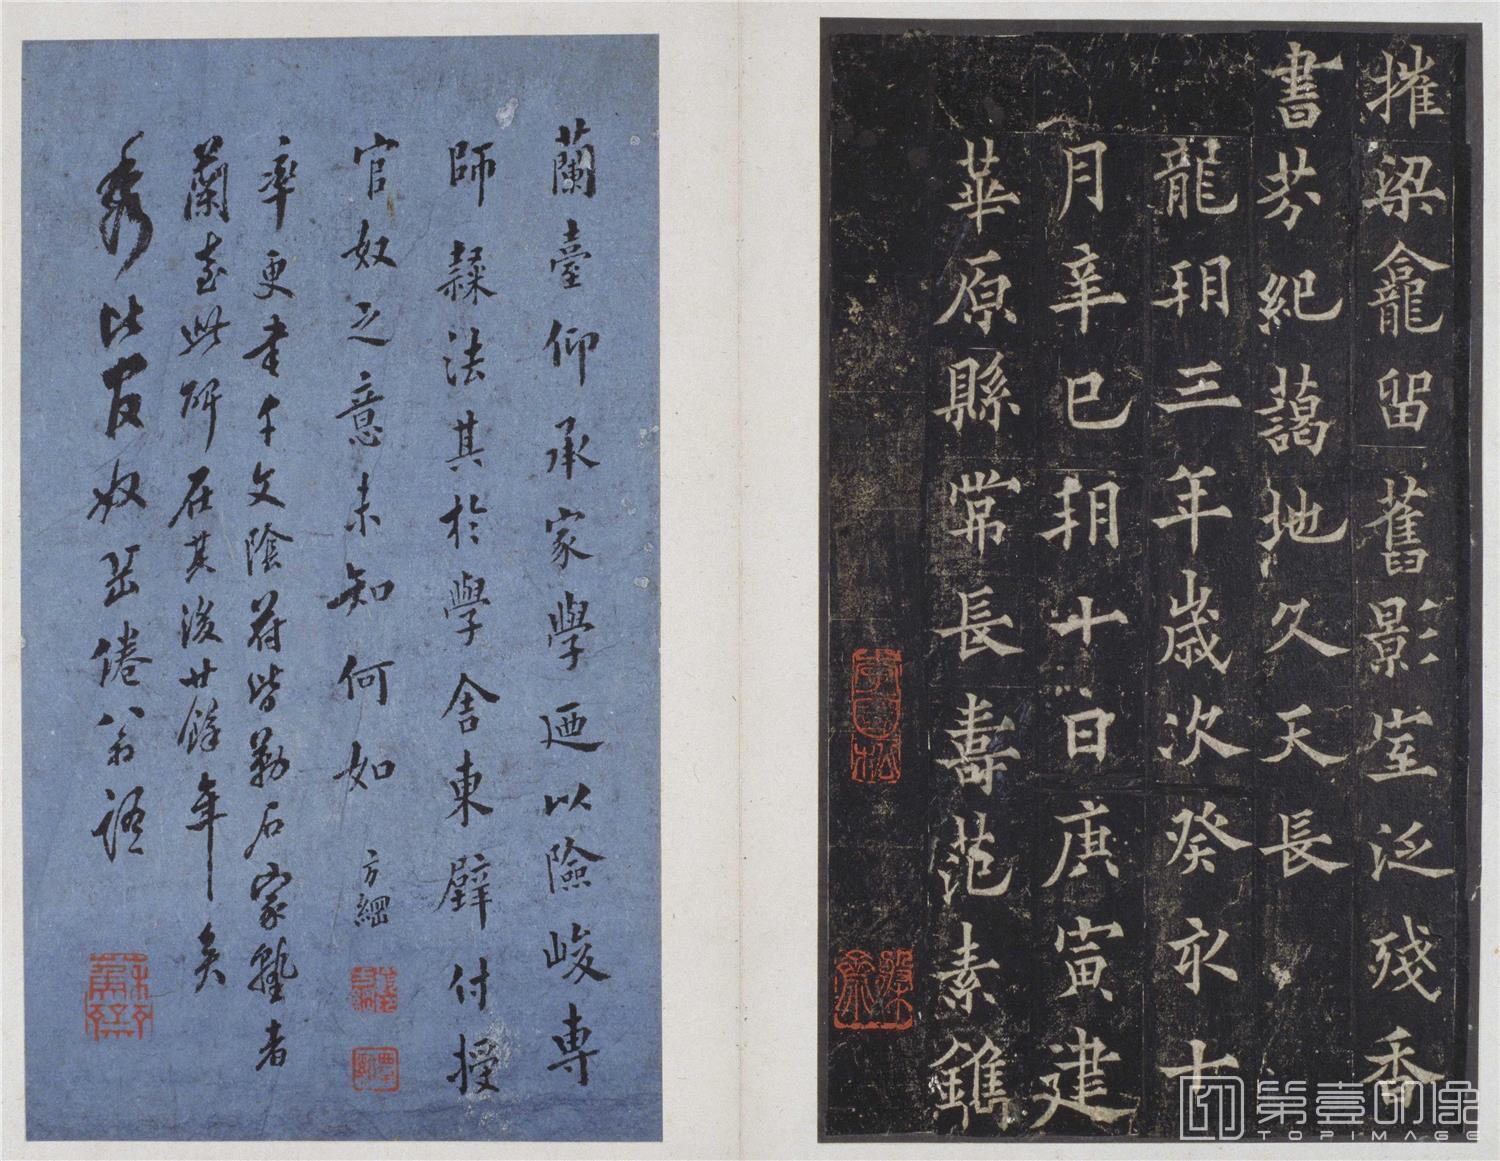 摧梁龕留舊影室泛殘香
書芬紀藹地久天長
龍朔三年歲次癸亥十
月辛巳朔十日庚寅建
華原縣常長壽范素鐫
蘭臺仰承家學廼以險峻專
師隸法其於學舍東壁付授
官奴之意未知何如 方綱
率更書千文陰符皆勒石家塾者
蘭臺此研在其後廿餘年矣
比官奴
翁
第壹印像
TOPIMAGE